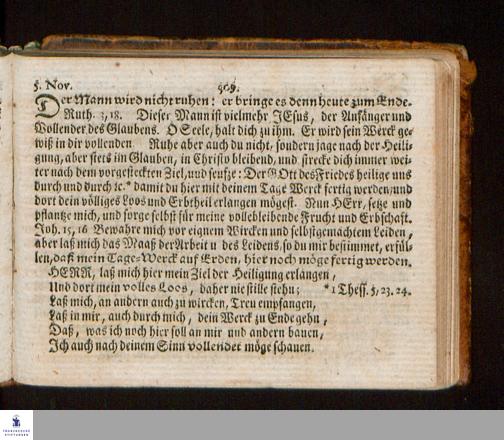 5. Nov. 309.
Der Mann wird nicht ruhen: er bringe es denn heute zum Ende.
Ruth. 3, 18. Dieser Mann ist vielmehr JEsus, der Anfänger und
Vollender des Glaubens. O Seele, halt dich zu ihm. Er wird sein Werck ge-
wiß in dir vollenden. Ruhe aber auch du nicht, sondern jage nach der Heili-
gung, aber stets im Glauben, in Christo bleibend, und strecke dich immer wei-
ter nach dem vorgesteckten Ziel, und seufze: Der GOtt des Friedes heilige uns
durch und durch ꝛc.* damit du hier mit deinem Tage Werck fertig werden, und
dort dein völliges Loos und Erbtheil erlangen mögest. Nun HErr, setze und
pflantze mich, und sorge selbst für meine vollebleibende Frucht und Erbschaft.
Joh. 15, 16 Bewahre mich vor eignem Wircken und selbstgemachtem Leiden,
aber laß mich das Maaß der Arbeit u. des Leidens, so du mir bestimmet, erfül-
len, daß mein Tage-Werck auf Erden, hier noch möge fertig werden.
HERR, laß mich hier mein Ziel der Heiligung erlangen,
Und dort mein volles Loos, daher nie stille stehn; *1 Thess. 5, 23. 24.
Laß mich, an andern auch zu wircken, Treu empfangen,
Laß in mir, auch durch mich, dein Werck zu Ende gehn,
Daß, was ich noch hier soll an mir und andern bauen,
Ich auch nach deinem Sinn vollendet möge schauen.
FRANCKESCHE
STIFTUNGEN